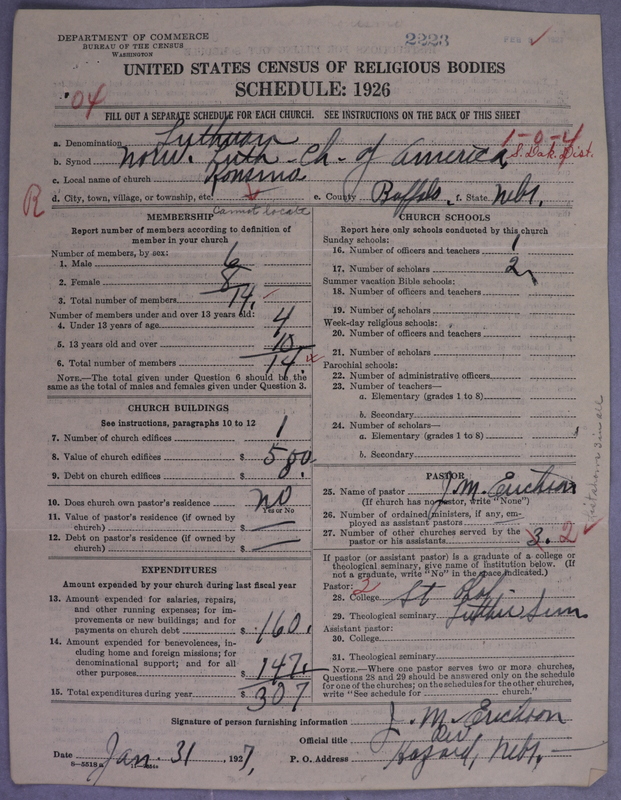 DEPARTMENT OF COMMERCE
BUREAU OF THE CENSUS
WASHINGTON
2223
UNITED STATES CENSUS OF RELIGIOUS BODIES
SCHEDULE: 1926
04
FILL OUT A SEPARATE SCHEDULE FOR EACH CHURCH. SEE INSTRUCTIONS ON THE BACK OF THIS SHEET
a. Denomination Luthuran
1-0-4
b. Synod Norw. Luth - Ch. of America,
S. Dak. Dist.
c. Local name of church
R
d. City, town, village, or township, etc. e. County Buffalo, f. State Nebr.
Cannot locate
MEMBERSHIP
Report number of members according to definition of
member in your church
Number of members, by sex:
1. Male 6
2. Female 8
3. Total number of members 14
Number of members under and over 13 years old:
4. Under 13 years of age 4
5. 13 years old and over 10
6. Total number of members 14
NOTE.—The total given under Question 6 should be the
same as the total of males and females given under Question 3.
CHURCH BUILDINGS
See instructions, paragraphs 10 to 12
7. Number of church edifices 1
8. Value of church edifices $ 500
9. Debt on church edifices $ 0
10. Does church own pastor's residence no
Yes or No
11. Value of pastor's residence (if owned by
church) $ —
12. Debt on pastor's residence (if owned by
church) $ —
EXPENDITURES
Amount expended by your church during last fiscal year
13. Amount expended for salaries, repairs,
and other running expenses; for im-
provements or new buildings; and for
payments on church debt $ 160.
14. Amount expended for benevolences, in-
cluding home and foreign missions; for
denominational support; and for all
other purposes $ 147.
15. Total expenditures during year $ 307
CHURCH SCHOOLS
Report here only schools conducted by this church
Sunday schools:
16. Number of officers and teachers 1
17. Number of scholars 2
Summer vacation Bible schools:
18. Number of officers and teachers
19. Number of scholars
Week-day religious schools:
20. Number of officers and teachers
21. Number of scholars
Parochial schools:
22. Number of administrative officers
23. Number of teachers—
a. Elementary (grades 1 to 8)
b. Secondary
24. Number of scholars—
a. Elementary (grades 1 to 8)
b. Secondary
PASTOR
25. Name of pastor J. M. Erickson
(If church has no pastor, write "None")
26. Number of ordained ministers, if any, em-
ployed as assistant pastors —
27. Number of other churches served by the
pastor or his assistants 3. 2
If pastor (or assistant pastor) is a graduate of a college or
theological seminary, give name of institution below. (If
not a graduate, write "No" in the space indicated.)
Pastor: 2
28. College St Olaf
29. Theological seminary Luther Sem
Assistant pastor:
30. College
31. Theological seminary
NOTE.—Where one pastor serves two or more churches,
Questions 28 and 29 should be answered only on the schedule
for one of the churches; on the schedules for the other churches,
write "See schedule for church."
Signature of person furnishing information J. M. Erickson
Official title Rev
Date Jan. 31, 1927, P. O. Address Hazard, Nebr.
8-5518a